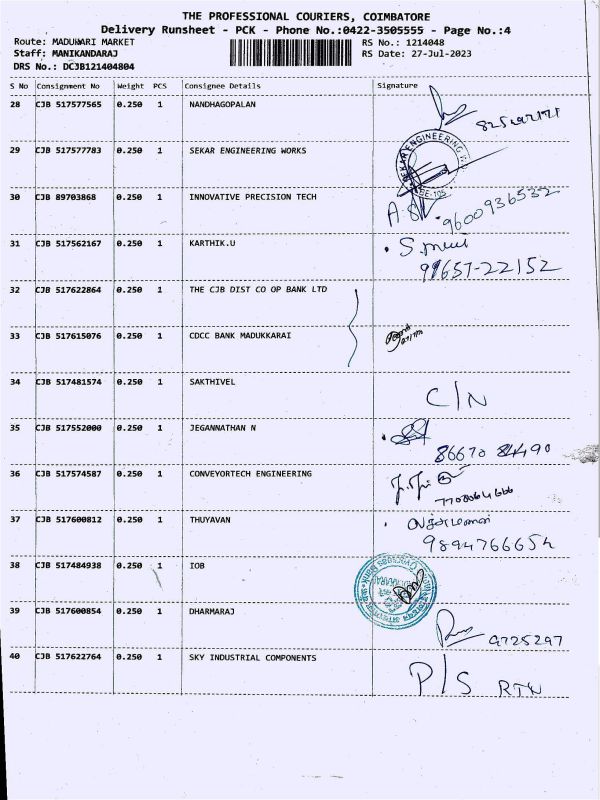 THE PROFESSIONAL COURIERS, COIMBATORE
Delivery Runsheet - PCK - Phone No.:0422-3505555 - Page No.:4
Route: MADUKARI MARKET RS No.: 1214048
Staff: MANIKANDARAJ RS Date: 27-Jul-2023
DRS No.: DCJB121404804
S No Consignment No Weight PCS Consignee Details Signature
28 CJB 517577565 0.250 1 NANDHAGOPALAN
29 CJB 517577783 0.250 1 SEKAR ENGINEERING WORKS
SEKAR ENGINEERING
30 CJB 89703868 0.250 1 INNOVATIVE PRECISION TECH
9600936532
31 CJB 517562167 0.250 1 KARTHIK.U
91657-22152
32 CJB 517622864 0.250 1 THE CJB DIST CO OP BANK LTD
33 CJB 517615076 0.250 1 CDCC BANK MADUKKARAI
34 CJB 517481574 0.250 1 SAKTHIVEL
C/N
35 CJB 517552000 0.250 1 JEGANNATHAN N
86670 84490
36 CJB 517574587 0.250 1 CONVEYORTECH ENGINEERING
7708064666
37 CJB 517600812 0.250 1 THUYAVAN
9894766654
38 CJB 517484938 0.250 1 IOB
39 CJB 517600854 0.250 1 DHARMARAJ
9725297
40 CJB 517622764 0.250 1 SKY INDUSTRIAL COMPONENTS
P/S RTN